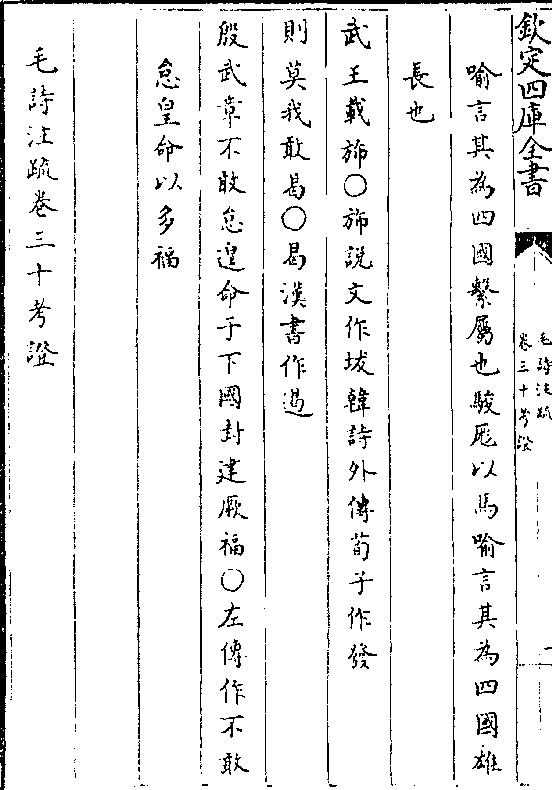 欽定四庫全書
毛詩注疏
卷三十考證
喻言其為四國繫屬也駿厖以馬喻言其為四國雄
長也
武王載斾○斾說文作坺韓詩外傳荀子作發
則莫我敢曷○曷漢書作遏
殷武章不敢怠遑命于下國封建厥福○左傳作不敢
怠皇命以多福
毛詩注疏卷三十考證